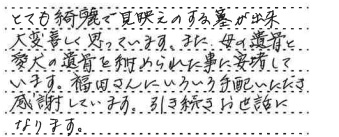 とても綺麗で見映えのする墓が出来
大変喜しく思っています。また、母の遺骨と
愛犬の遺骨を納められた事に安堵して
います。福田さんにいろいろ手配いただき
感謝しています。引き続きお世話に
なります。